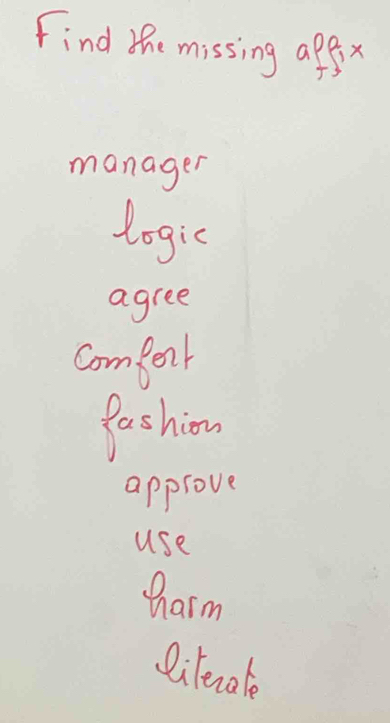 Find the missing affix
manager
logic
agree
comfort
fashion
approve
use
harm
literate